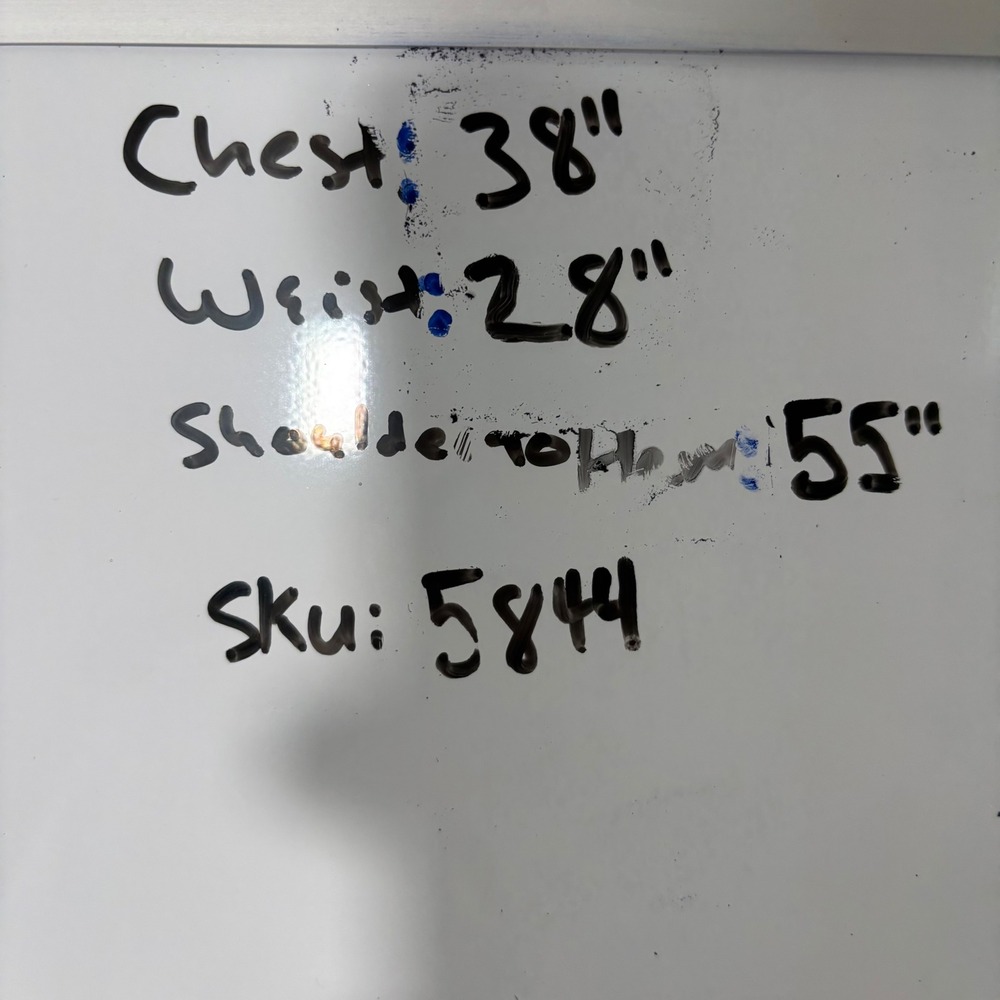 Chest: 38"
Waist: 28"
Shoulder to Hem: 55"
SKU: 5844